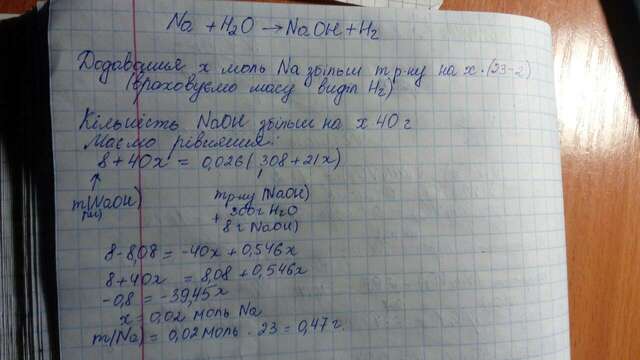 Na + H2O → NaOH + H2
Додавання x моль Na збільш m р-ну на x · (23-2)
(враховуємо масу виділ H2)
Кількість NaOH збільш на x 40 г
Маємо рівняння:
8 + 40x = 0,026(308 + 21x)
m(NaOH)
m р-ну (NaOH)
+ 300г H2O
8 г NaOH)
8 - 8,08 = -40x + 0,546x
8 + 40x = 8,08 + 0,546x
-0,8 = -39,45x
x = 0,02 моль Na
m(Na) = 0,02 моль · 23 = 0,47 г